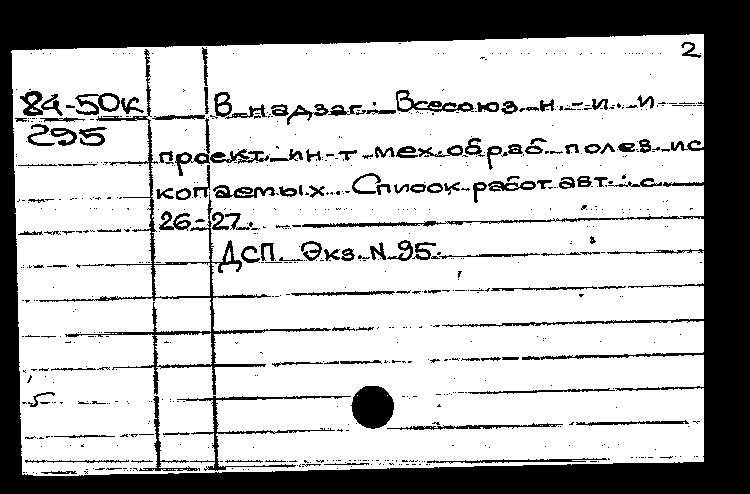 2
84-50к В надзаг.: Всесоюз. н.-и. и
295
проект. ин-т мех. обраб. полез. ис
копаемых. Список работ авт.: с.
26-27.
ДСП. Экз. N 95.
5